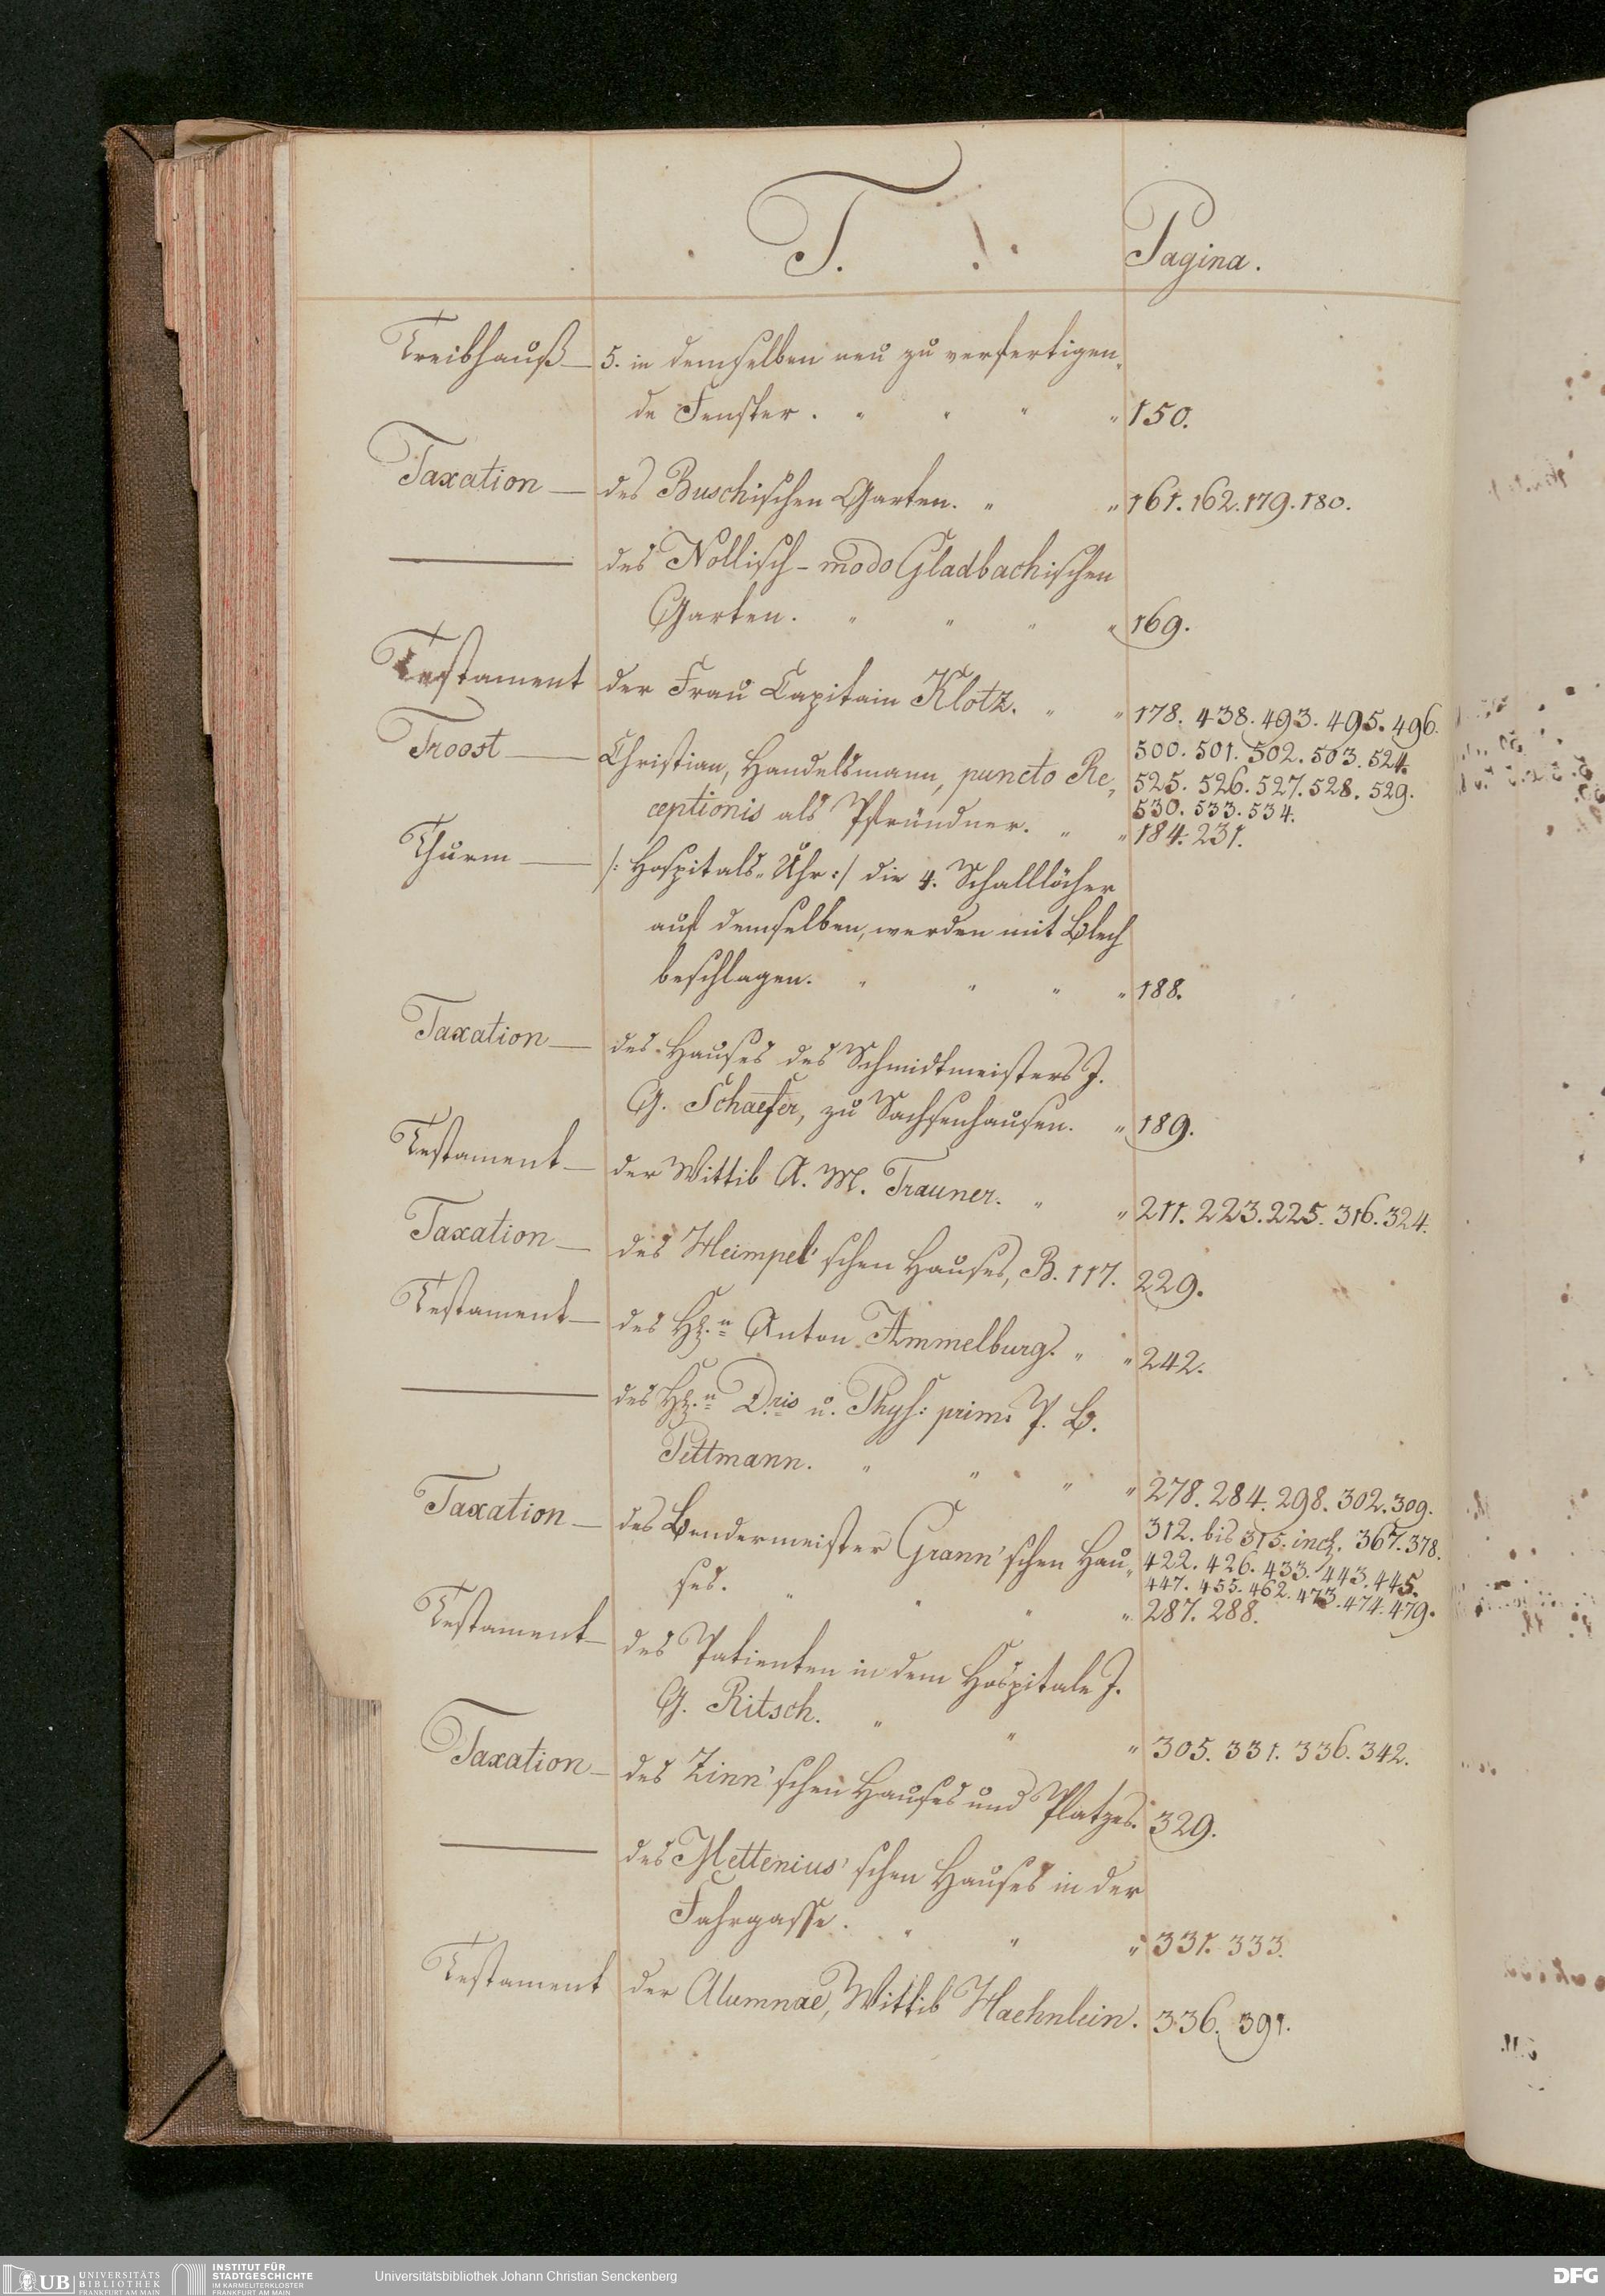 T. Pagina.
Treibhauß — 5. in demselben neu zu verfertigen-
de Fenster. " " " " 150.
Taxation — des Buschischen Garten. " " 161. 162. 179. 180.
——— des Nollisch - modo Gladbachischen
Garten. " " " " 169.
Testament der Frau Capitain Klotz. " " 178. 438. 493. 495. 496.
500. 501. 502. 503. 524.
Troost — Christian, Handelsmann, puncto Re-
525. 526. 527. 528. 529.
530. 533. 534.
ceptionis als Pfründner. " " 184. 231.
Thurm — /: Hospitals-Uhr :/ die 4. Schalllöcher
auf demselben, werden mit Blech
beschlagen. " " " " 188.
Taxation — des Hauses des Schmidtmeisters J.
G. Schaefer, zu Sachsenhausen. " 189.
Testament — der Wittib A. M. Trauner. " " 211. 223. 225. 316. 324.
Taxation — des Heimpel'schen Hauses, B. 117. 229.
Testament — des H.n Anton Ammelburg. " " 242.
——— des H.n Dris u. Phys: prim: P. B.
Pettmann. " " " " 278. 284. 298. 302. 309.
312. bis 315. incl. 367. 378.
Taxation — des Bendermeister Grann'schen Hau-
422. 426. 433. 443. 445.
447. 455. 462. 473. 474. 479.
ses. " " " " 287. 288.
Testament — des Patienten in dem Hospitale J.
G. Ritsch. " " " 305. 331. 336. 342.
Taxation — des Zinn'schen Hauses und Platzes. 329.
——— des Mettenius'schen Hauses in der
Fahrgasse. " " " 331. 333.
Testament der Alumnae, Wittib Haehnlein. 336. 391.
UB UNIVERSITÄTS
BIBLIOTHEK
FRANKFURT AM MAIN
INSTITUT FÜR
STADTGESCHICHTE
IM KARMELITERKLOSTER
FRANKFURT AM MAIN
Universitätsbibliothek Johann Christian Senckenberg
DFG